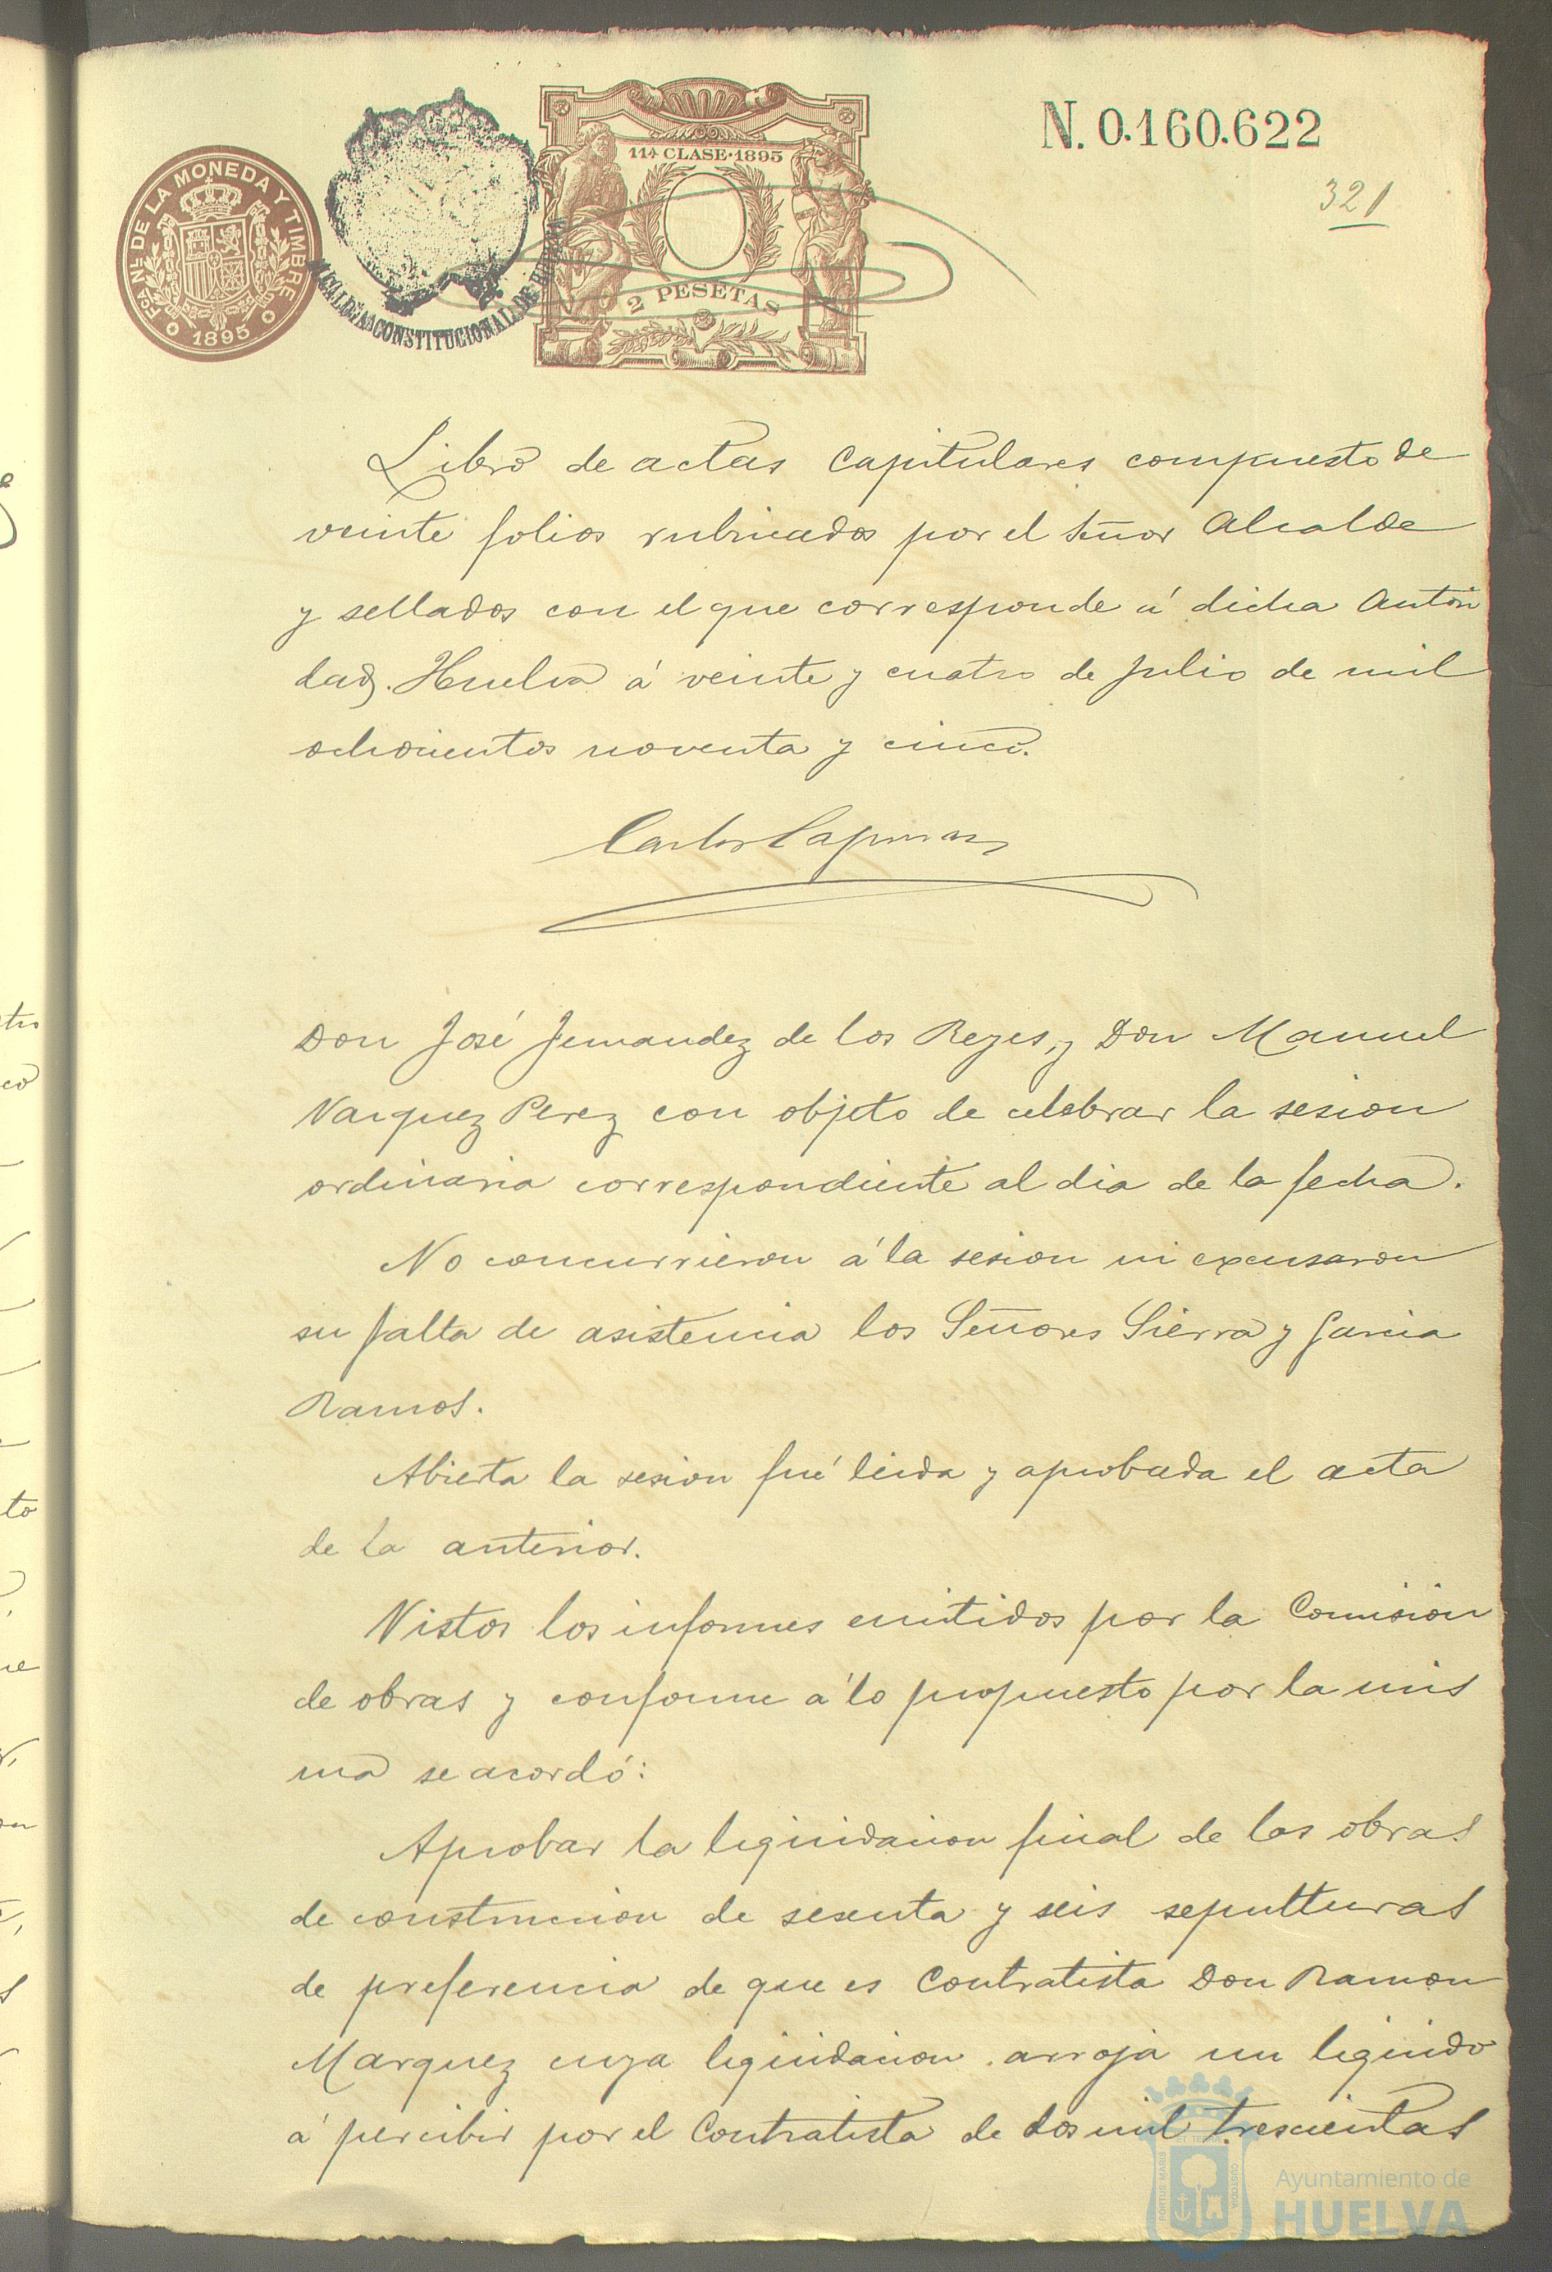 N. 0.160.622
321
FCA. NAL. DE LA MONEDA Y TIMBRE
1895
ALCALDIA CONSTITUCIONAL DE HUELVA
11ª CLASE·1895
2 PESETAS
Libro de actas Capitulares compuesto de
veinte folios rubricados por el Señor Alcalde
y sellados con el que corresponde á dicha Autori
dad. Huelva á veinte y cuatro de Julio de mil
ochocientos noventa y cinco.
Carlos
Don José Fernandez de los Reyes, y Don Manuel
Vazquez Perez con objeto de celebrar la sesion
ordinaria correspondiente al dia de la fecha.
No concurrieron á la sesion ni excusaron
su falta de asistencia los Señores Sierra y Garcia
Ramos.
Abierta la sesion fué leida y aprobada el acta
de la anterior.
Vistos los informes emitidos por la Comision
de obras y conforme á lo propuesto por la mis
ma se acordó:
Aprobar la liquidacion final de las obras
de construccion de sesenta y seis sepulturas
de preferencia de que es Contratista Don Ramon
Marquez cuya liquidacion arroja un liquido
á percibir por el Contratista de dos mil trescientas
PORTUS MARIS ET TERRAE CUSTODIA
Ayuntamiento de
HUELVA